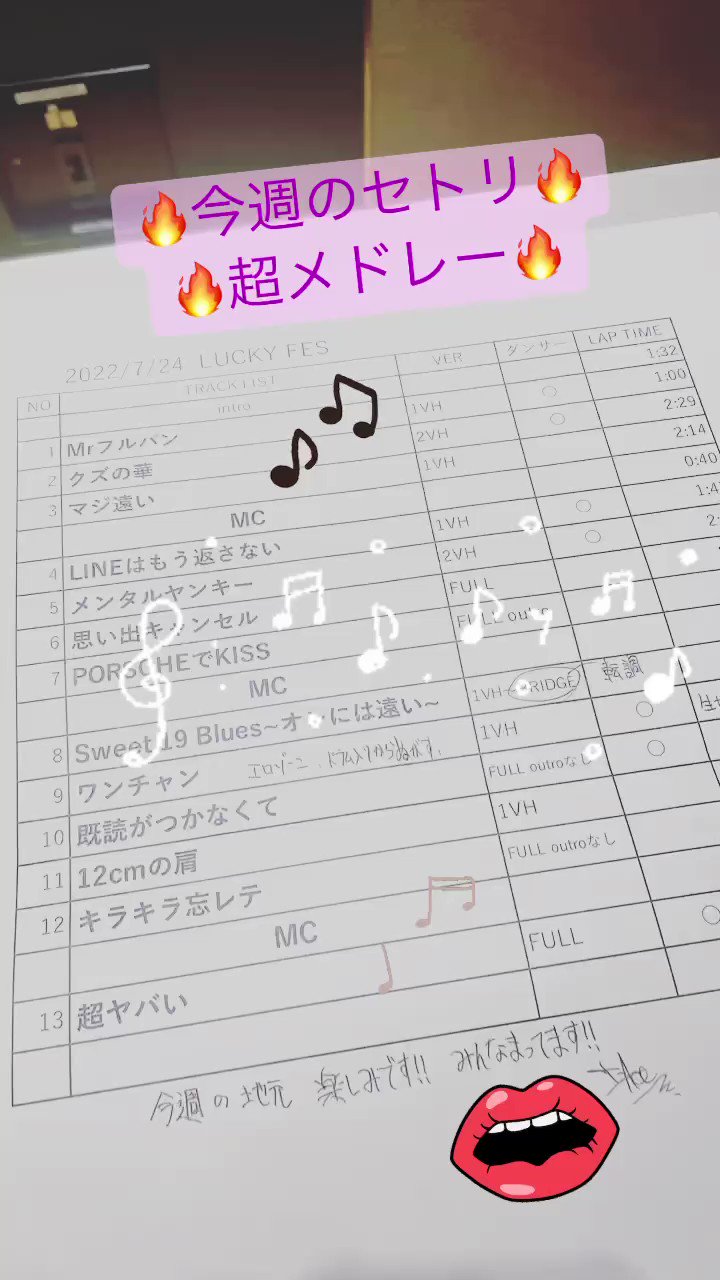 🔥今週のセトリ🔥
🔥超メドレー🔥
2022/7/24 LUCKY FES
NO TRACK LIST VER ダンサー LAP TIME
intro 1:32
1 Mrフルバン 1VH ○ 1:00
2 クズの華 2VH ○ 2:29
3 マジ遠い 1VH 2:14
MC 0:40
4 LINEはもう返さない 1VH ○
5 メンタルヤンキー 2VH ○
6 思い出キャンセル FULL
7 PORSCHEでKISS FULL
MC
8 Sweet 19 Blues~ 1VH~BRIDGE 転調
9 ワンチャン 1VH ○
10 既読がつかなくて FULL outroなし ○
11 12cmの肩 1VH
12 キラキラ忘レテ FULL outroなし
MC
13 超ヤバい FULL ○
今週の地元 楽しみです!! みんなまってます!!